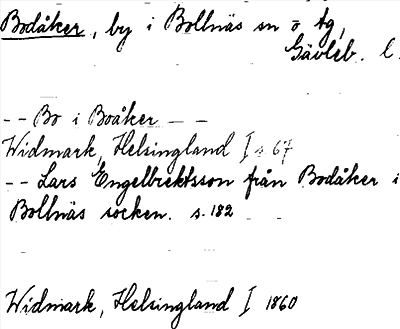 Bodåker, by i Bollnäs sn o tg,
Gävleb. l.
-- Bo i Boåker --
Widmark, Helsingland I s 67
-- Lars Engelbrektsson från Bodåker i
Bollnäs socken. s. 182
Widmark, Helsingland I 1860